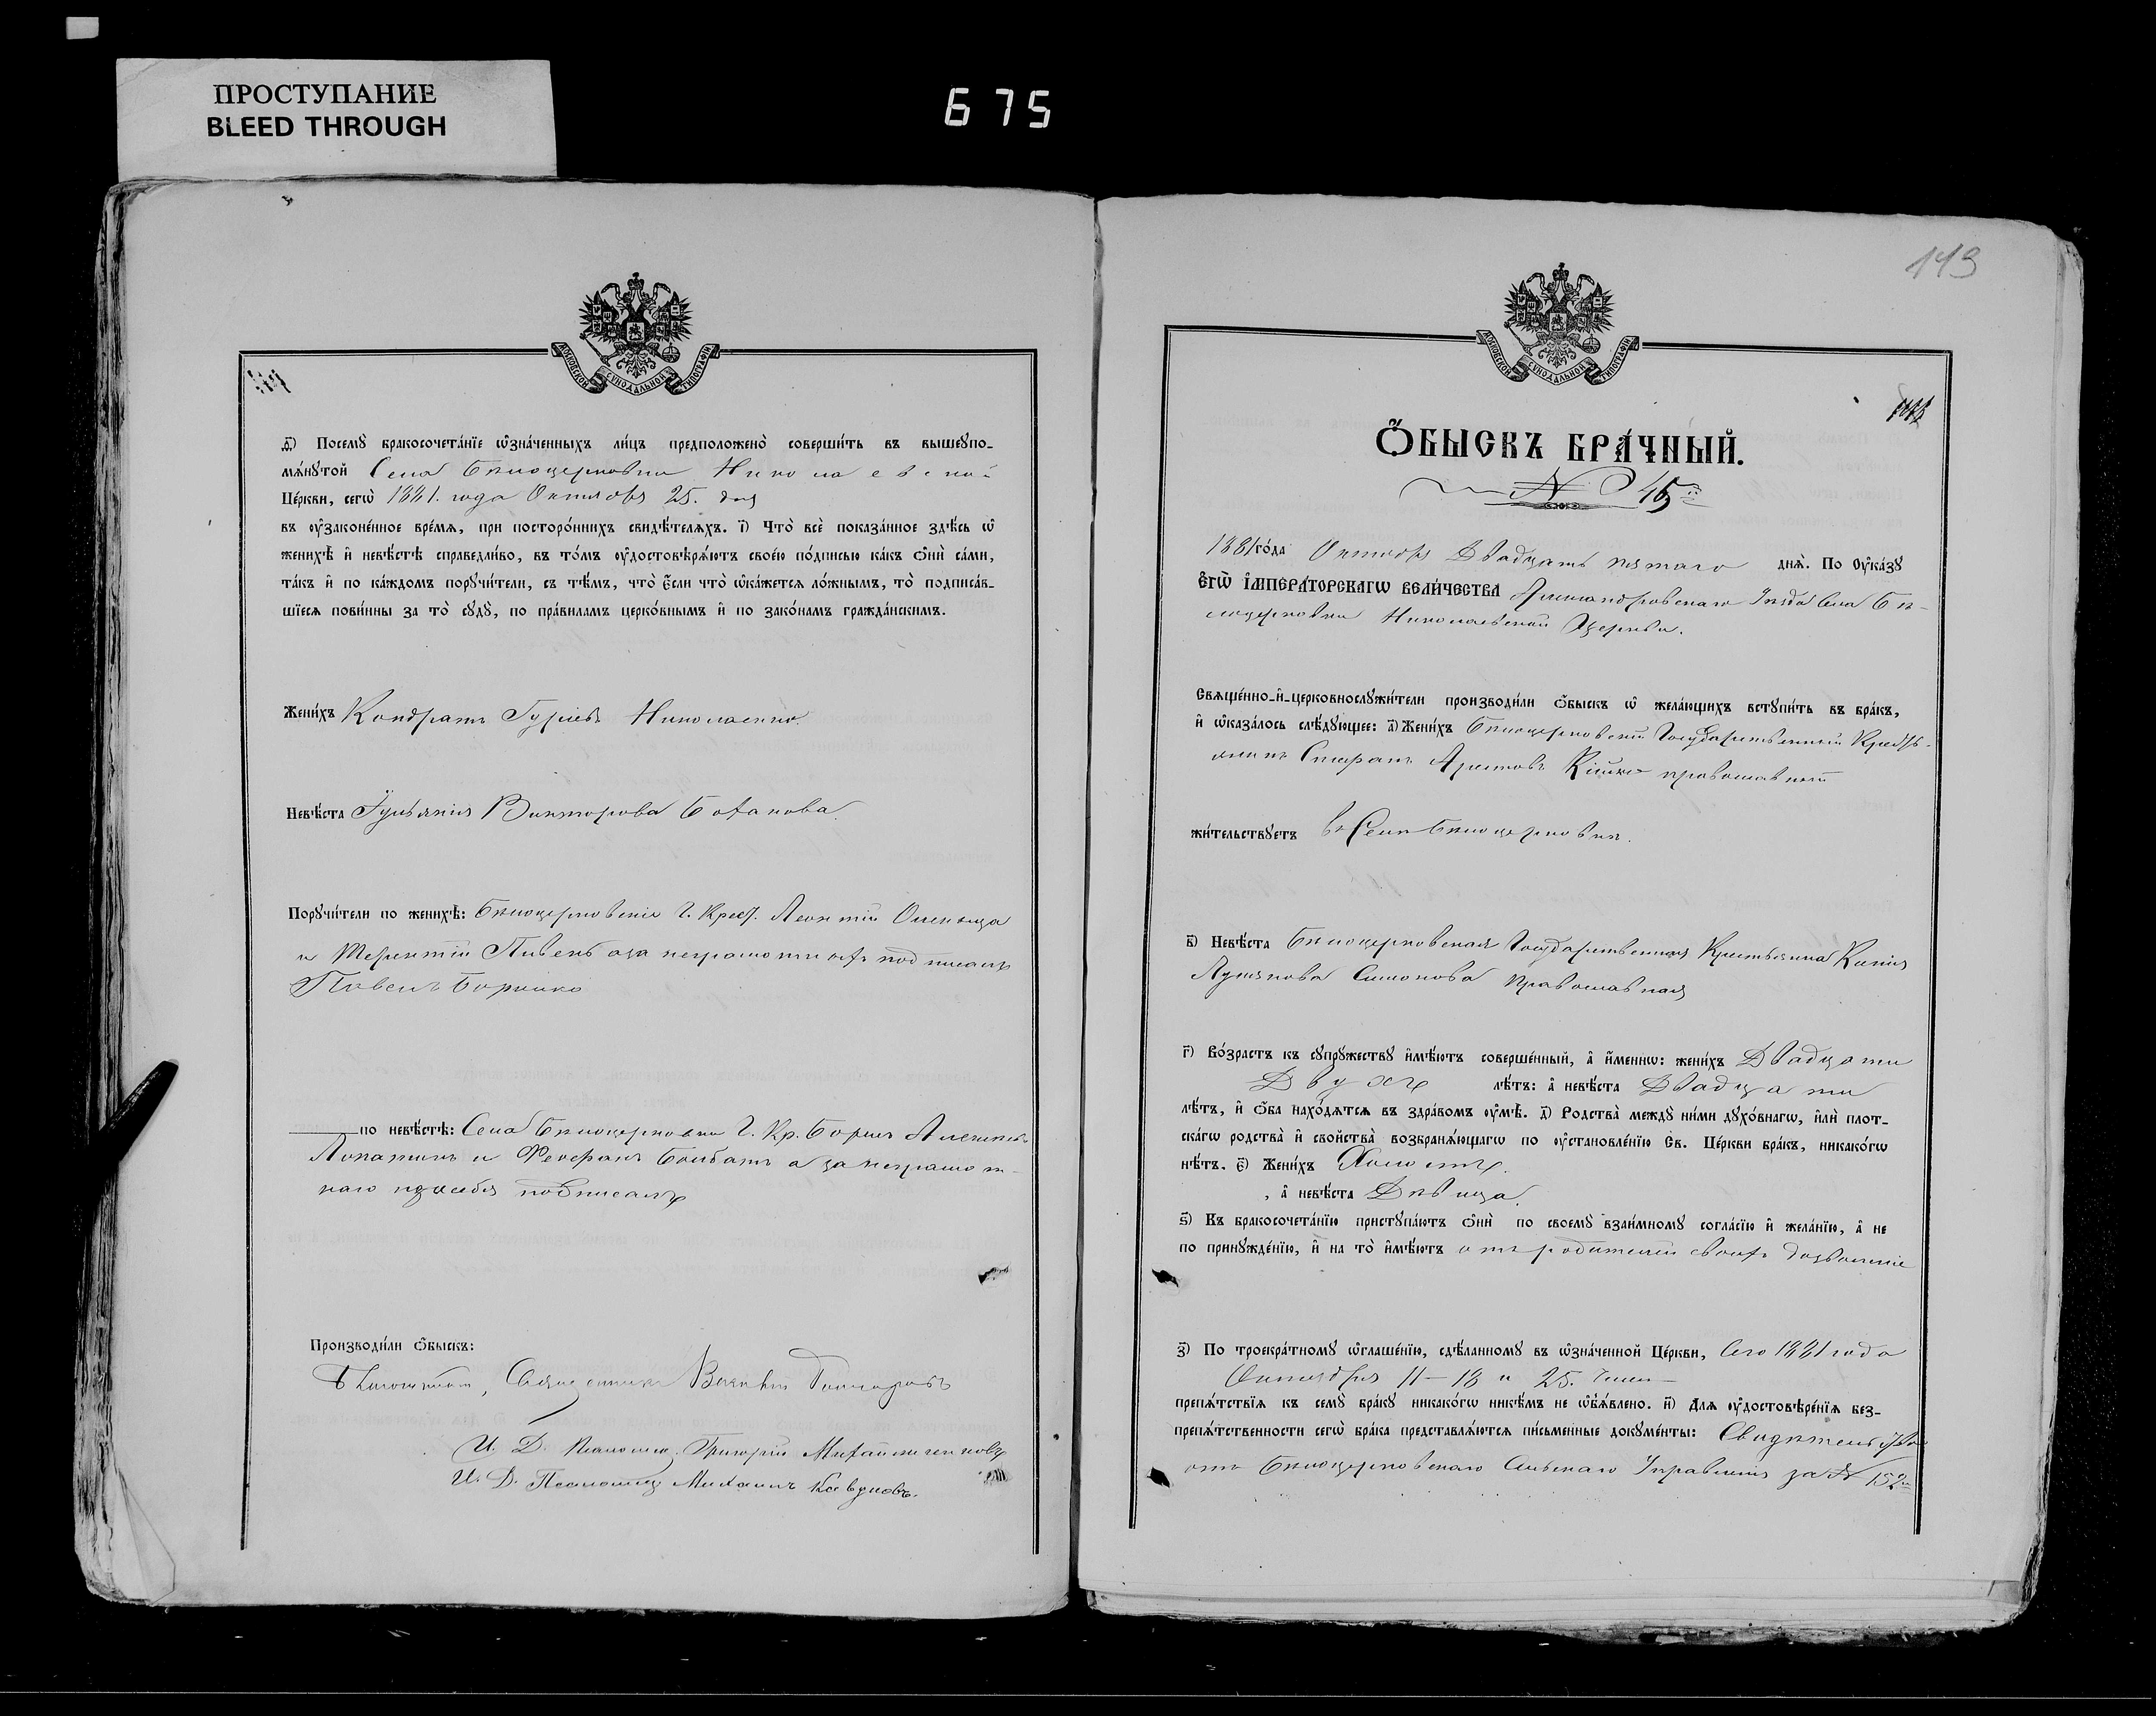 ПРОСТУПАНИЕ
BLEED THROUGH
675
МОСКОВСКОЙ СѴНОДАЛЬНОЙ ТИПОГРАФІИ
ѳ҃) Посемꙋ̀ бракосочета́нїе ѡ҆зна́ченныхъ ли́цъ предположено̀ соверши́ть въ вышеꙋпо-
мѧ́нꙋтой Села Бѣлоцерковки Николаевской
Це́ркви, сегѡ̀ 1881. года Октября 25. дня
въ ᲂу҆законе́нное вре́мѧ, при посторо́ннихъ свидѣ́телѧхъ. і҃) Что̀ всѐ пока́занное здѣ́сь ѡ҆
женихѣ̀ и҆ невѣ́стѣ справедли́во, въ то́мъ ᲂу҆достовѣрѧ́ютъ свое́ю по́дписью ка́къ ѻ҆нѝ са́ми,
та́къ и҆ по ка́ждомъ порꙋчи́тели, съ тѣ́мъ, что̀ є҆́сли что̀ ѡ҆ка́жетсѧ ло́жнымъ, то̀ подписа́в-
шїесѧ пови́нны за то̀ сꙋдꙋ̀, по пра́виламъ церко́внымъ и҆ по зако́намъ гражда́нскимъ.
Жени́хъ Кондратъ Гурiевъ Николаенко
Невѣ́ста Гульянiя Викторова Боханова
Порꙋчи́тели по женихѣ̀: Бѣлоцерковскiе Г. Крест. Леонтiй
и Терентiй Пивень а за неграмотныхъ подписалъ
Павелъ
по невѣ́стѣ: Села Бѣлоцерковки Г. Кр. Борисъ
Лопатинъ и Феофанъ а за неграмот-
наго и за себя подписалъ
Производи́ли ѻ҆́быскъ:
Священникъ
И. Д. Псаломщ. Григорiй Михайличенковъ
И. Д. Псаломщ. Михаилъ Ковуновъ.
113
МОСКОВСКОЙ СѴНОДАЛЬНОЙ ТИПОГРАФІИ
Ѻ҆́БЫСКЪ БРА́ЧНЫЙ.
N 45й
1881 го́да Октября Двадцать пятаго днѧ̀. По ᲂу҆ка́зꙋ
Е҆ГѠ̀ И҆МПЕРА́ТОРСКАГѠ ВЕЛИ́ЧЕСТВА Александровскаго Уѣзда Села Бѣ-
лоцерковки Николаевской Церкви.
Свѧще́нно-и҆-церковнослꙋжи́тели производи́ли ѻ҆́быскъ ѡ҆ жела́ющихъ встꙋпи́ть въ бра́къ,
и҆ ѡ҆каза́лось слѣ́дꙋющее: а҃) Жени́хъ Бѣлоцерковскiй Государственный Кресть-
янинъ православный
жи́тельствꙋетъ въ Селѣ Бѣлоцерковкѣ.
в҃) Невѣ́ста Бѣлоцерковская Государственная Крестьянка Ксенiя
Лукьянова Симонова православная
г҃) Во́зрастъ къ сꙋпрꙋ́жествꙋ и҆мѣ́ютъ соверше́нный, а҆ и҆́меннѡ: жени́хъ Двадцати
Двухъ лѣ́тъ: а҆ невѣ́ста Двадцати
лѣ́тъ, и҆ ѻ҆́ба нахо́дѧтсѧ въ здра́вомъ ᲂу҆мѣ̀. д҃) Родства̀ междꙋ ни́ми дꙋхо́внагѡ, и҆лѝ плот-
ска́гѡ родства̀ и҆ сво́йства̀ возбранѧ́ющагѡ по ᲂу҆становле́нїю Св. Це́ркви бра́къ, никако́гѡ
нѣ́тъ. є҃) Жени́хъ Холостъ
, а҆ невѣ́ста Дѣвица.
ѕ҃) Къ бракосочета́нїю пристꙋпа́ютъ ѻ҆нѝ по своемꙋ̀ взаи́мномꙋ согла́сїю и҆ жела́нїю, а҆ не
по принꙋжде́нїю, и҆ на то̀ и҆мѣ́ютъ отъ родителей своихъ дозволенiе
з҃) По троекра́тномꙋ ѡ҆глаше́нїю, сдѣ́ланномꙋ въ ѡ҆зна́ченной Це́ркви, Сего 1881 года
Октября 11-18 и 25. числ
препѧ́тствїѧ къ семꙋ̀ бра́кꙋ никако́гѡ никѣ́мъ не ѡ҆б̾ѧ́влено. и҃) Длѧ ᲂу҆достовѣре́нїѧ без-
препѧ́тственности сегѡ̀ бра́ка представлѧ́ютсѧ пи́сьменные докꙋме́нты: Свидѣтельство
отъ Бѣлоцерковскаго Сельскаго Управленiя за N 152